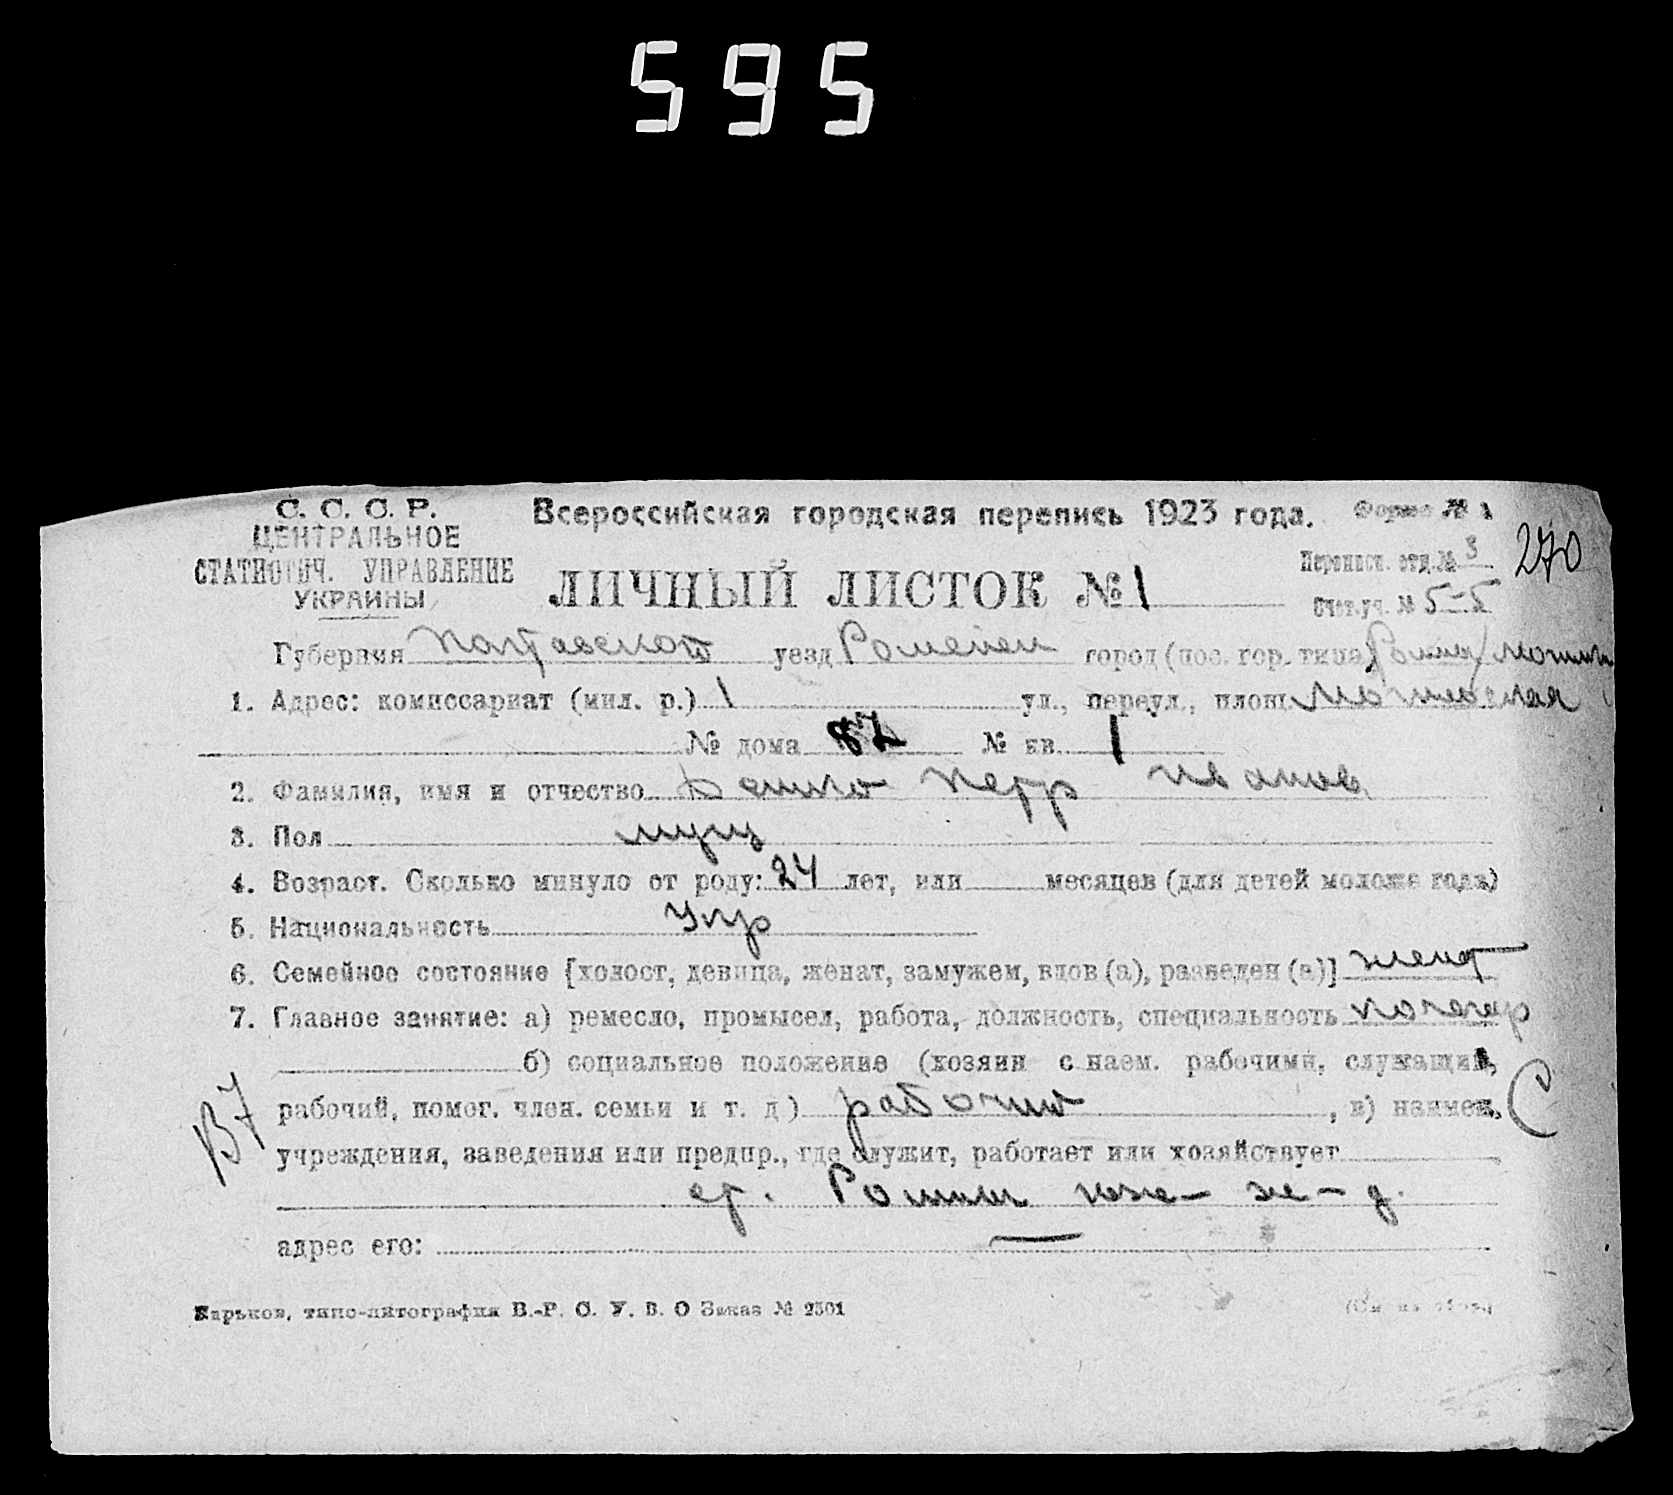 595
С. С. С. Р.
ЦЕНТРАЛЬНОЕ
СТАТИСТИЧ. УПРАВЛЕНИЕ
УКРАИНЫ
Всероссийская городская перепись 1923 года.
Форма № 1
Переписн. отд. № 3
270
ЛИЧНЫЙ ЛИСТОК № 1
Счет. уч. № 5-5
Губерния Полтавской уезд Роменск город (пос. гор. типа) Ромны
1. Адрес: комиссариат (мил. р.) 1 ул., переул., площ.
№ дома 87 № кв. 1
2. Фамилия, имя и отчество Петр Иванов
3. Пол муж
4. Возраст. Сколько минуло от роду: 24 лет, или месяцев (для детей моложе года)
5. Национальность Укр
6. Семейное состояние [холост, девица, женат, замужем, вдов (а), разведен (а)] женат
7. Главное занятие: а) ремесло, промысел, работа, должность, специальность кочегар
б) социальное положение (хозяин с наем. рабочими, служащий,
рабочий, помог. член. семьи и т. д) рабочий , в) наимен. С
В7
учреждения, заведения или предпр., где служит, работает или хозяйствует
ст. Ромны ж-д.
адрес его: —
Харьков, типо-литография В.-Р. С. У. В. О Заказ № 2501
(См. на обор.